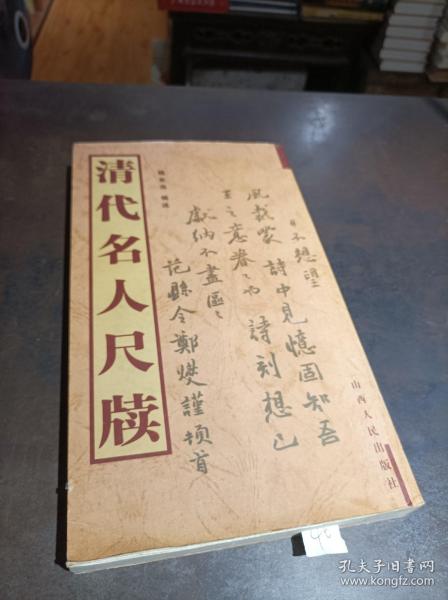 清代名人尺牍
日不想望
詩中見憶固知吾
風裁蒙
詩刻想已
至之意眷
獻納不盡區
范縣令鄭燮謹頓首
山西人民出版社
孔夫子旧书网
www.kongfz.com